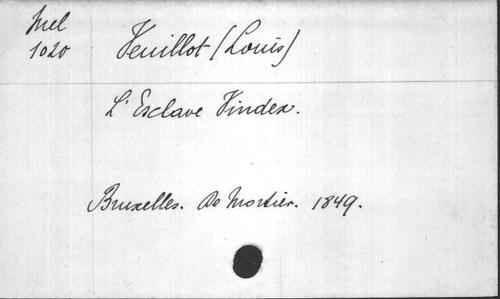 Mel
1020
Veuillot (Louis)
L'Esclave Vindex.
Bruxelles. De Mortier. 1849.